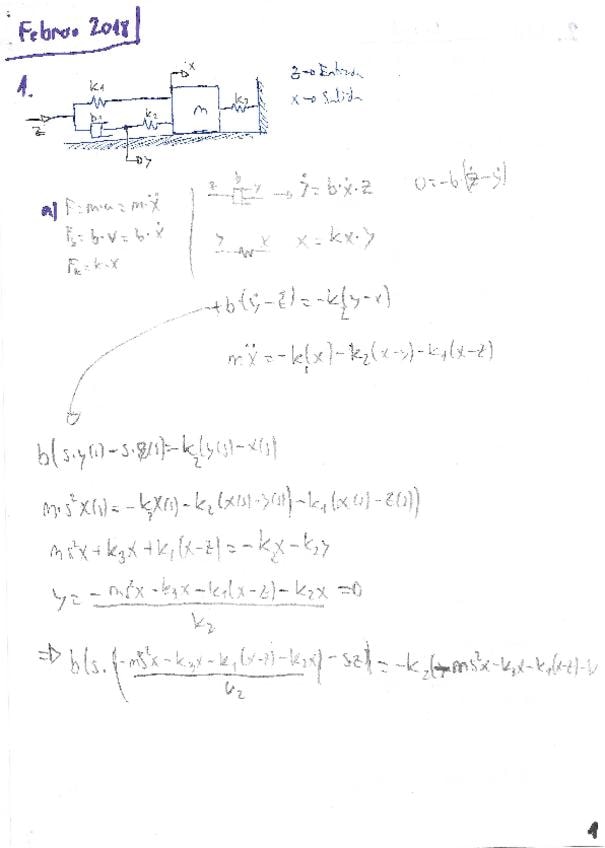 Febrero 2018
1.
x
z → Entrada
x → Salida
k1
b1
k2
m
k3
z
y
a) F = m·a = m·ẍ
F_b = b·v = b·ẋ
F_k = k·x
z b y → ẏ = b·ẋ·z
0 = -b(ż-ẏ)
y x x = kx·y
+b(ẏ-ż) = -k2(y-x)
mẍ = -k3(x) - k2(x-y) - k1(x-z)
b(s·y(s) - s·z(s)) = -k2(y(s) - x(s))
m·s²X(s) = -k3X(s) - k2(x(s)-y(s)) - k1(x(s)-z(s))
ms²x + k3x + k1(x-z) = -k2x - k2y
y = -ms²x - k3x - k1(x-z) - k2x / k2 =0
⇒ b(s·(-ms²x - k3x - k1(x-z) - k2x / k2) - sz) = -k2(-ms²x - k3x - k1(x-z) -
1